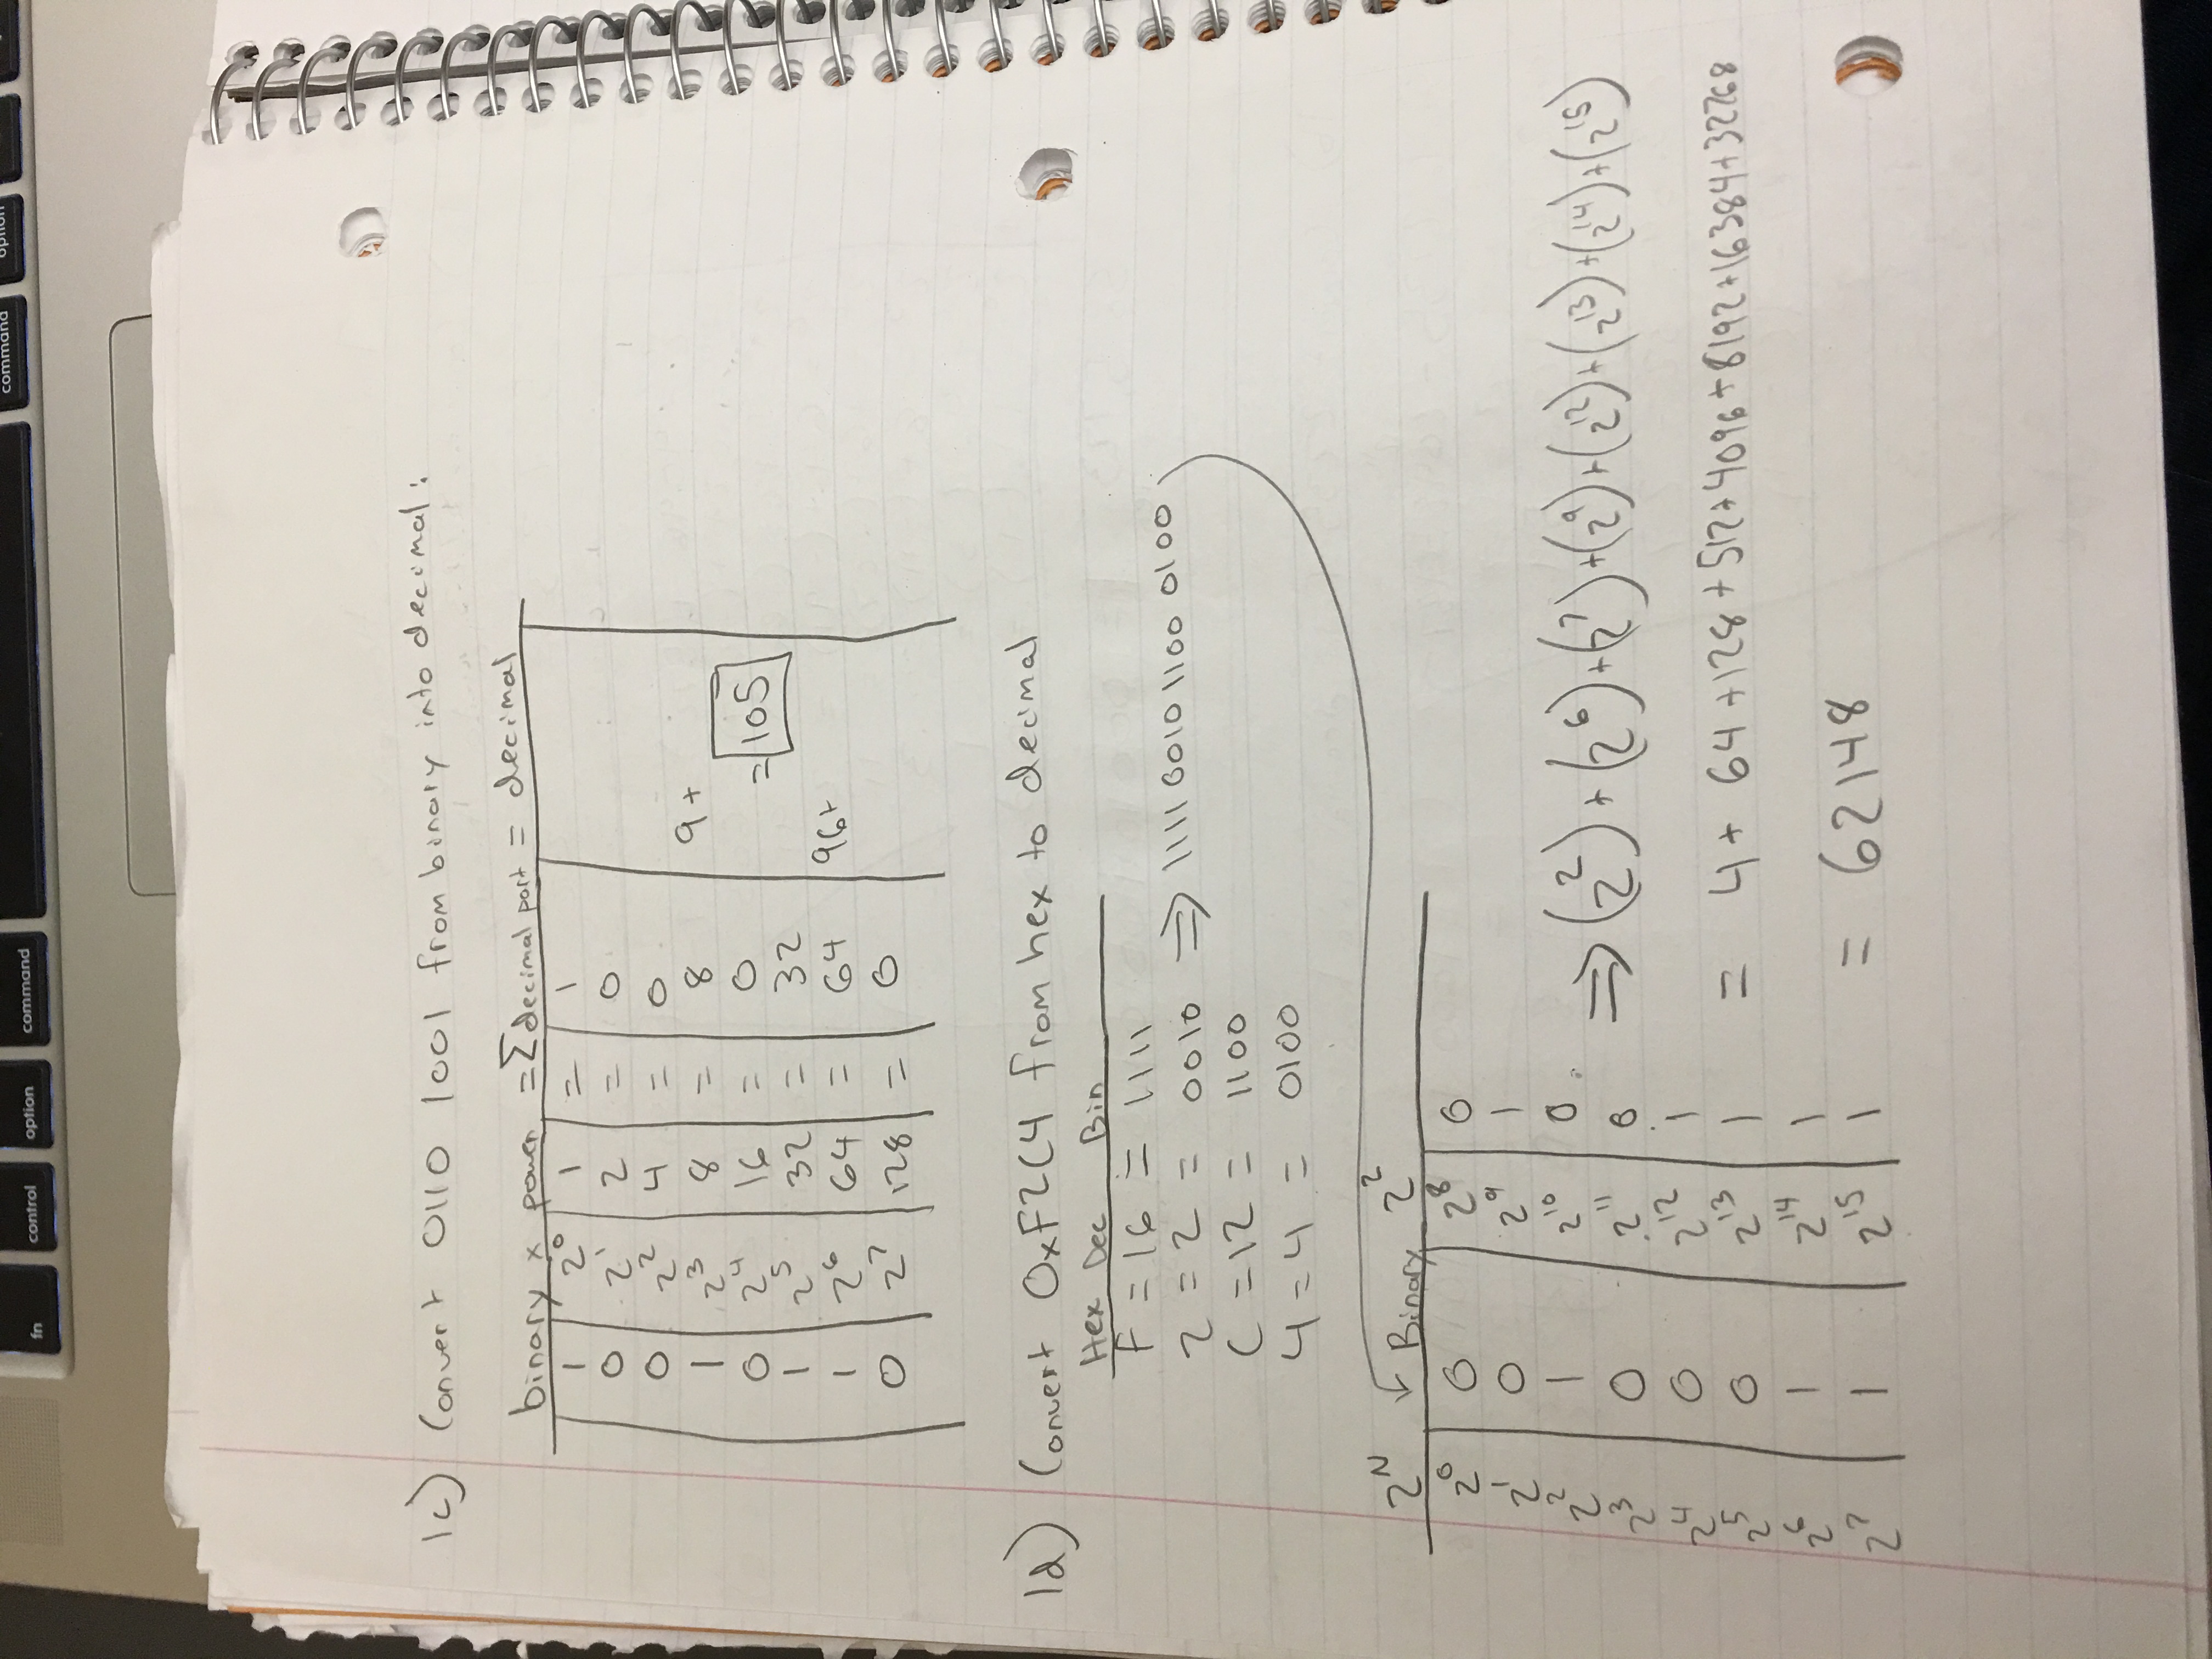 fn control option command command option
1c) Convert 0110 1001 from binary into decimal:
binary x power = Σ decimal part = decimal
1 2⁰ 1 = 1
0 2¹ 2 = 0
0 2² 4 = 0
1 2³ 8 = 8 9+
0 2⁴ 16 = 0 = 105
1 2⁵ 32 = 32
1 2⁶ 64 = 64 96+
0 2⁷ 128 = 0
1d) Convert 0xF2C4 from hex to decimal
Hex Dec Bin
F = 16 = 1111
2 = 2 = 0010 ⇒ 1111 0010 1100 0100
C = 12 = 1100
4 = 4 = 0100
2ᴺ Binary 2²
2⁰ 0 2⁸ 0
2¹ 0 2⁹ 1
2² 1 2¹⁰ 0
2³ 0 2¹¹ 0
⇒ (2²) + (2⁶) + (2⁷) + (2⁹) + (2¹²) + (2¹³) + (2¹⁴) + (2¹⁵)
2⁴ 0 2¹² 1
2⁵ 0 2¹³ 1 = 4 + 64 + 128 + 512 + 4096 + 8192 + 16384 + 32768
2⁶ 1 2¹⁴ 1
2⁷ 1 2¹⁵ 1 = 62148